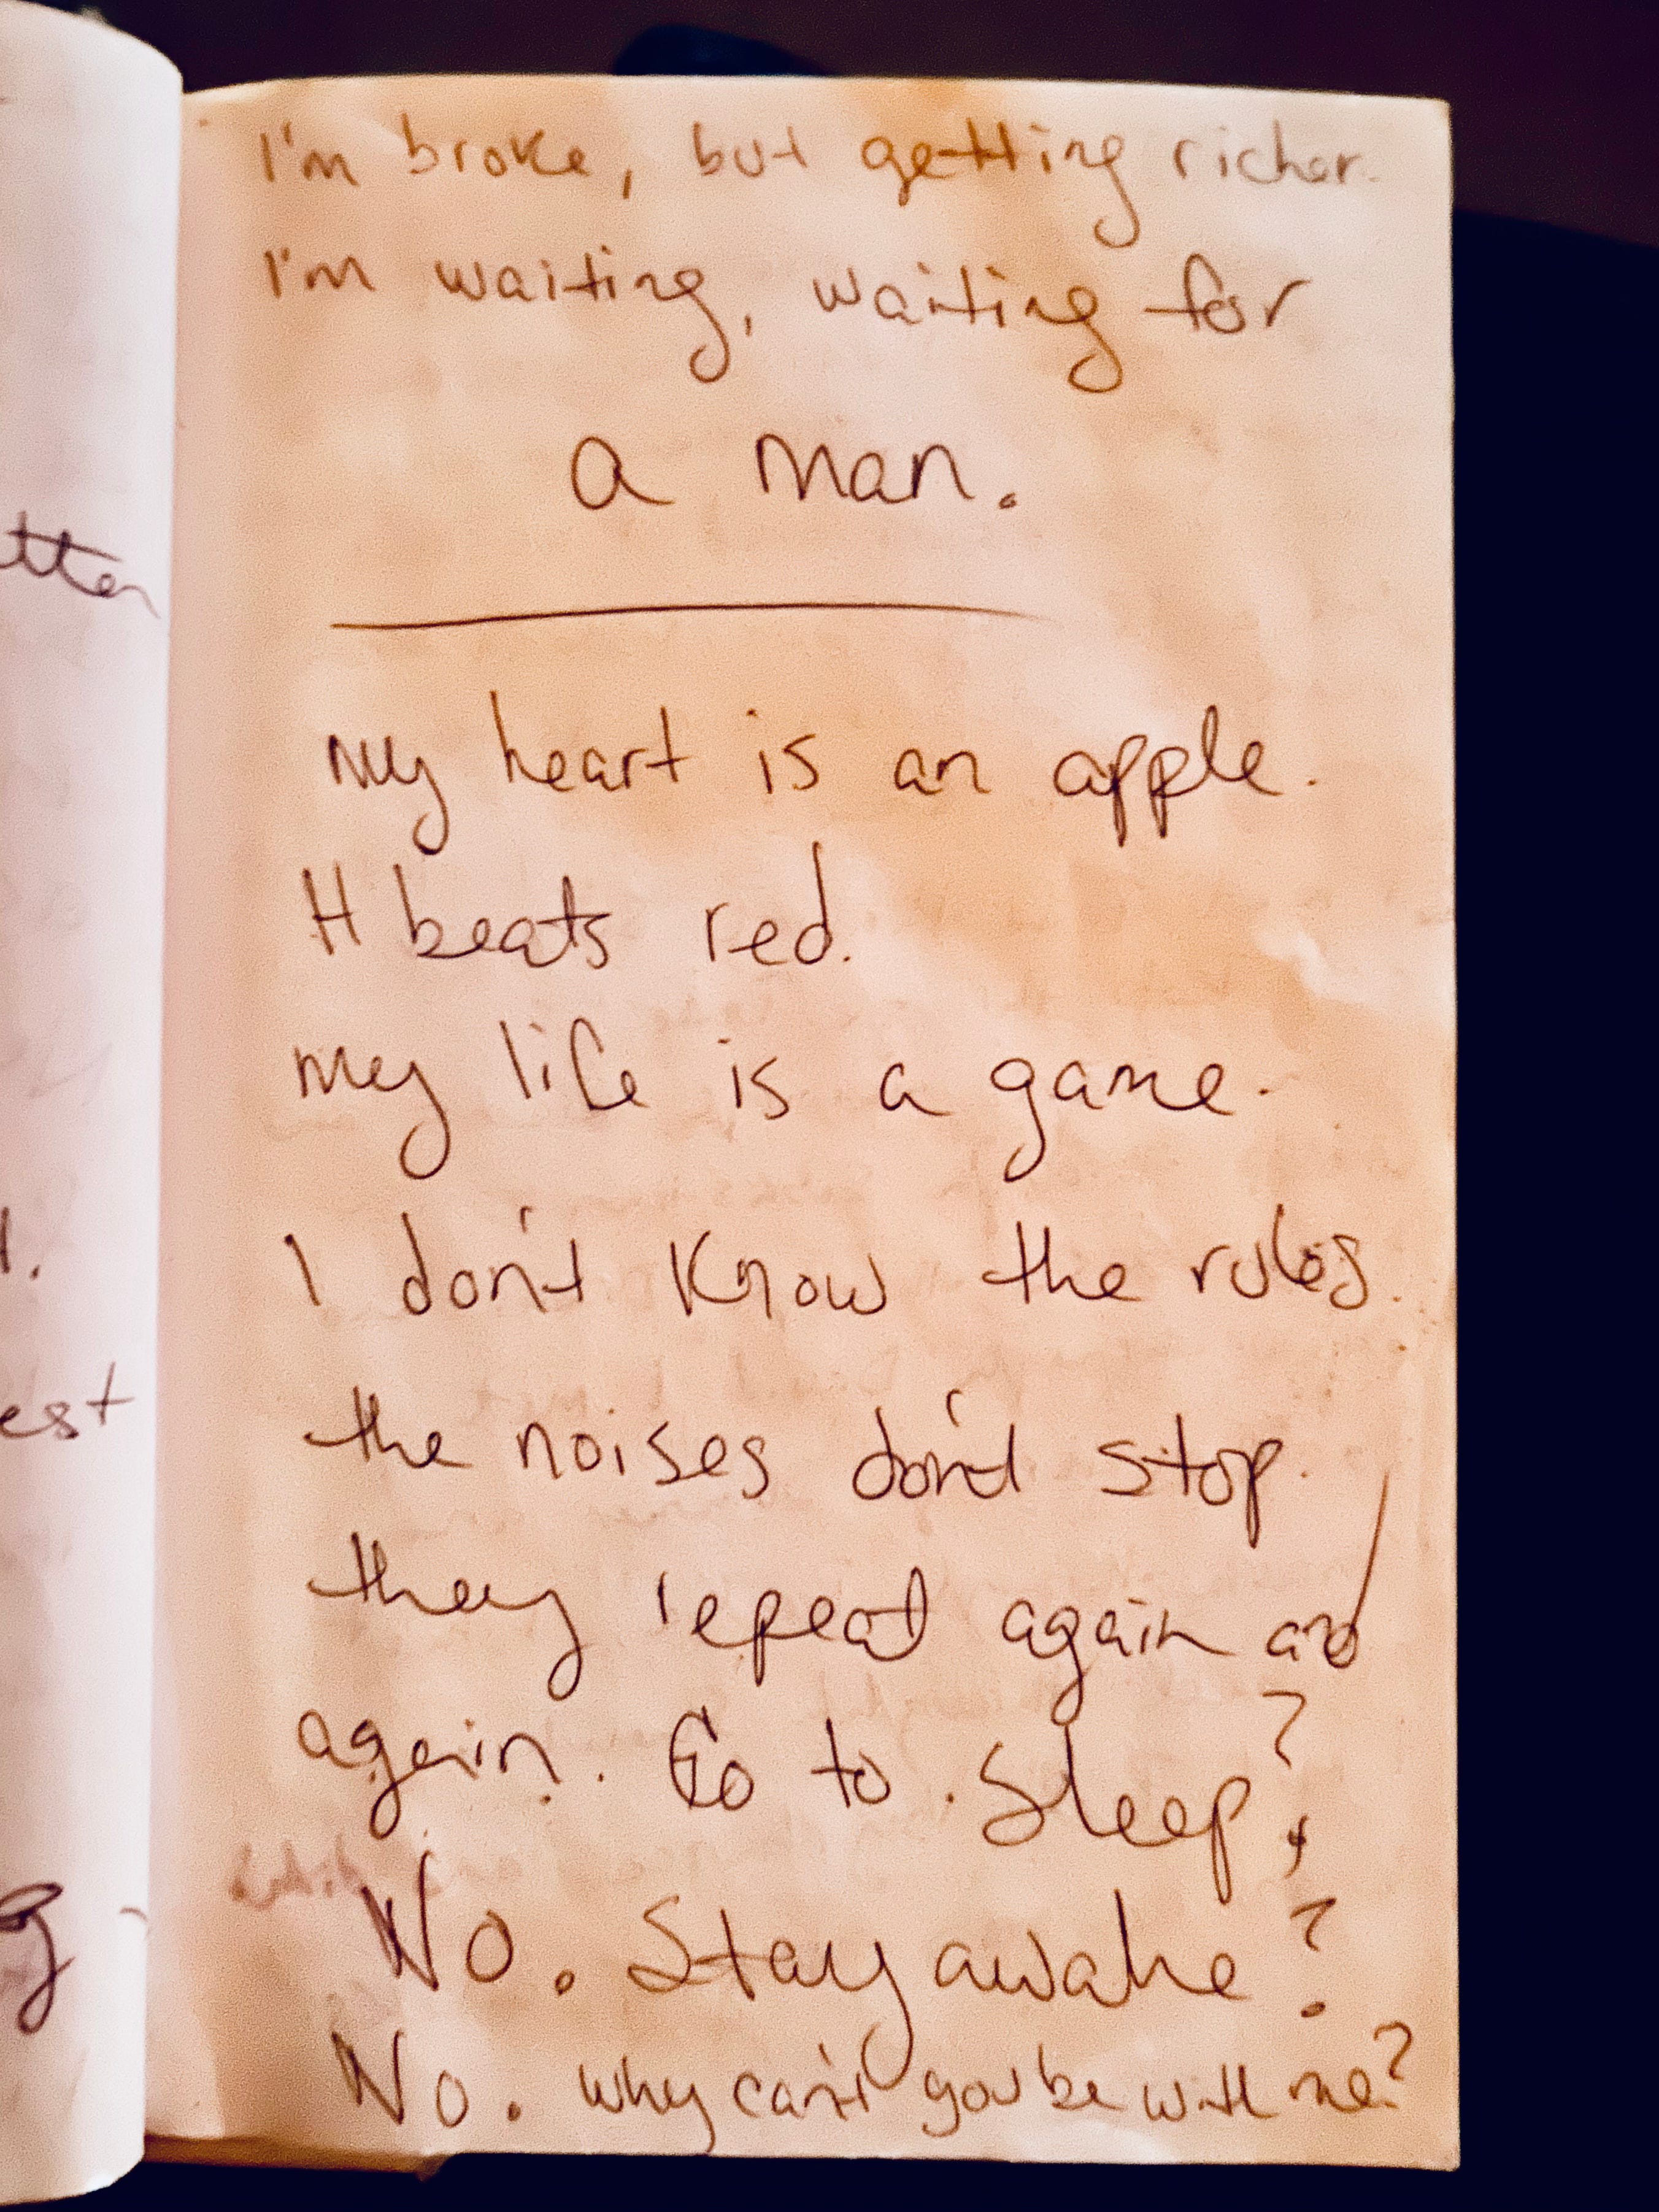 I'm broke, but getting richer.
I'm waiting, waiting for
a man.
my heart is an apple.
It beats red.
my life is a game.
I don't know the rules.
the noises don't stop.
they repeat again and
again. Go to sleep?
No. Stay awake?
No. why can't you be with me?
est